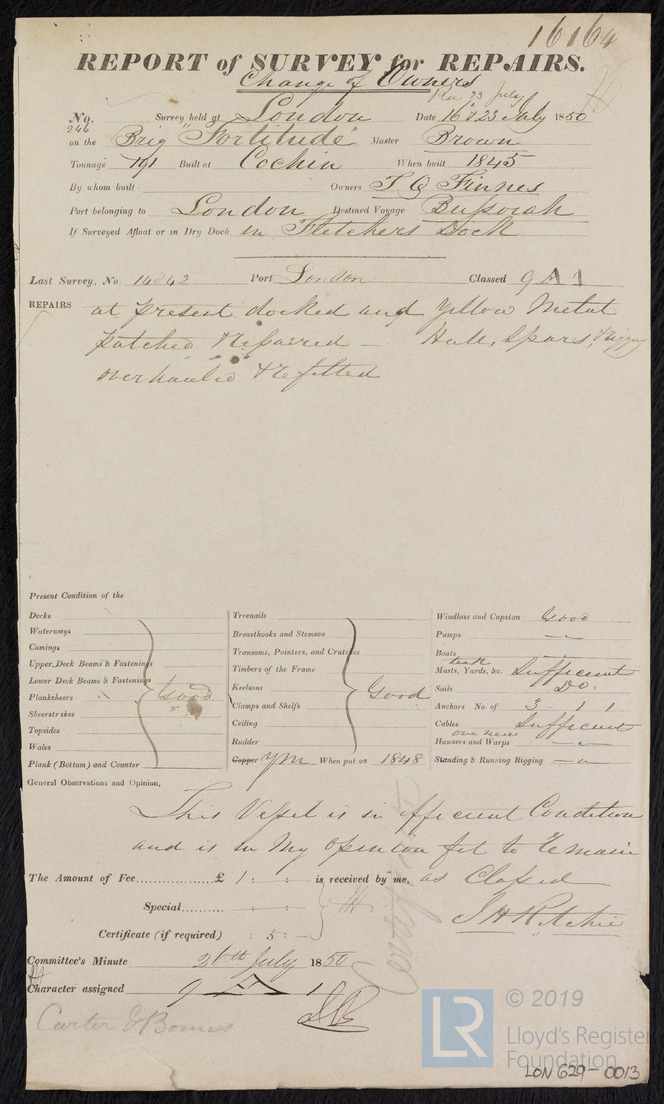 16164
REPORT of SURVEY for REPAIRS.
Change of Owners
Rec 23 July
No. 246 Survey held at London Date 16 & 23 July 1850
on the Brig "Fortitude" Master Brown
Tonnage 191 Built at Cochin When built 1845
By whom built Owners T Q Finnes
Port belonging to London Destined Voyage Bussorah
If Surveyed Afloat or in Dry Dock in Fletchers Dock
Last Survey, No. 14842 Port London Classed 9 A 1
REPAIRS at present docked and Yellow Metal
patched & repaired — Hull, Spars, & rigging
overhauled & refitted
Present Condition of the
Decks
Waterways
Comings
Upper Deck Beams & Fastenings
Lower Deck Beams & Fastenings
Planksheers Good
Sheerstrakes
Topsides
Wales
Plank (Bottom) and Counter
Treenails
Breasthooks and Stemson
Transoms, Pointers, and Crutches
Timbers of the Frame
Keelsons Good
Clamps and Shelfs
Ceiling
Rudder
Copper YM When put on 1848
Windlass and Capstan Good
Pumps — " —
Boats — " —
Masts, Yards, &c. Sufficient
Sails Do.
Anchors No. of 3 1 1
Cables Sufficient
one new
Hawsers and Warps — " —
Standing & Running Rigging — " —
General Observations and Opinion,
This Vessel is in efficient Condition
and is in My Opinion fit to remain
The Amount of Fee £ 1 : : is received by me, as Classed
Special : :
J H Ritchie
Certificate (if required) : 5 :
Committee's Minute 26th July 1850
Character assigned 9 A 1
Certificate
Carter & Bonus
LR
© 2019
Lloyd's Register
Foundation
LON 629-0013